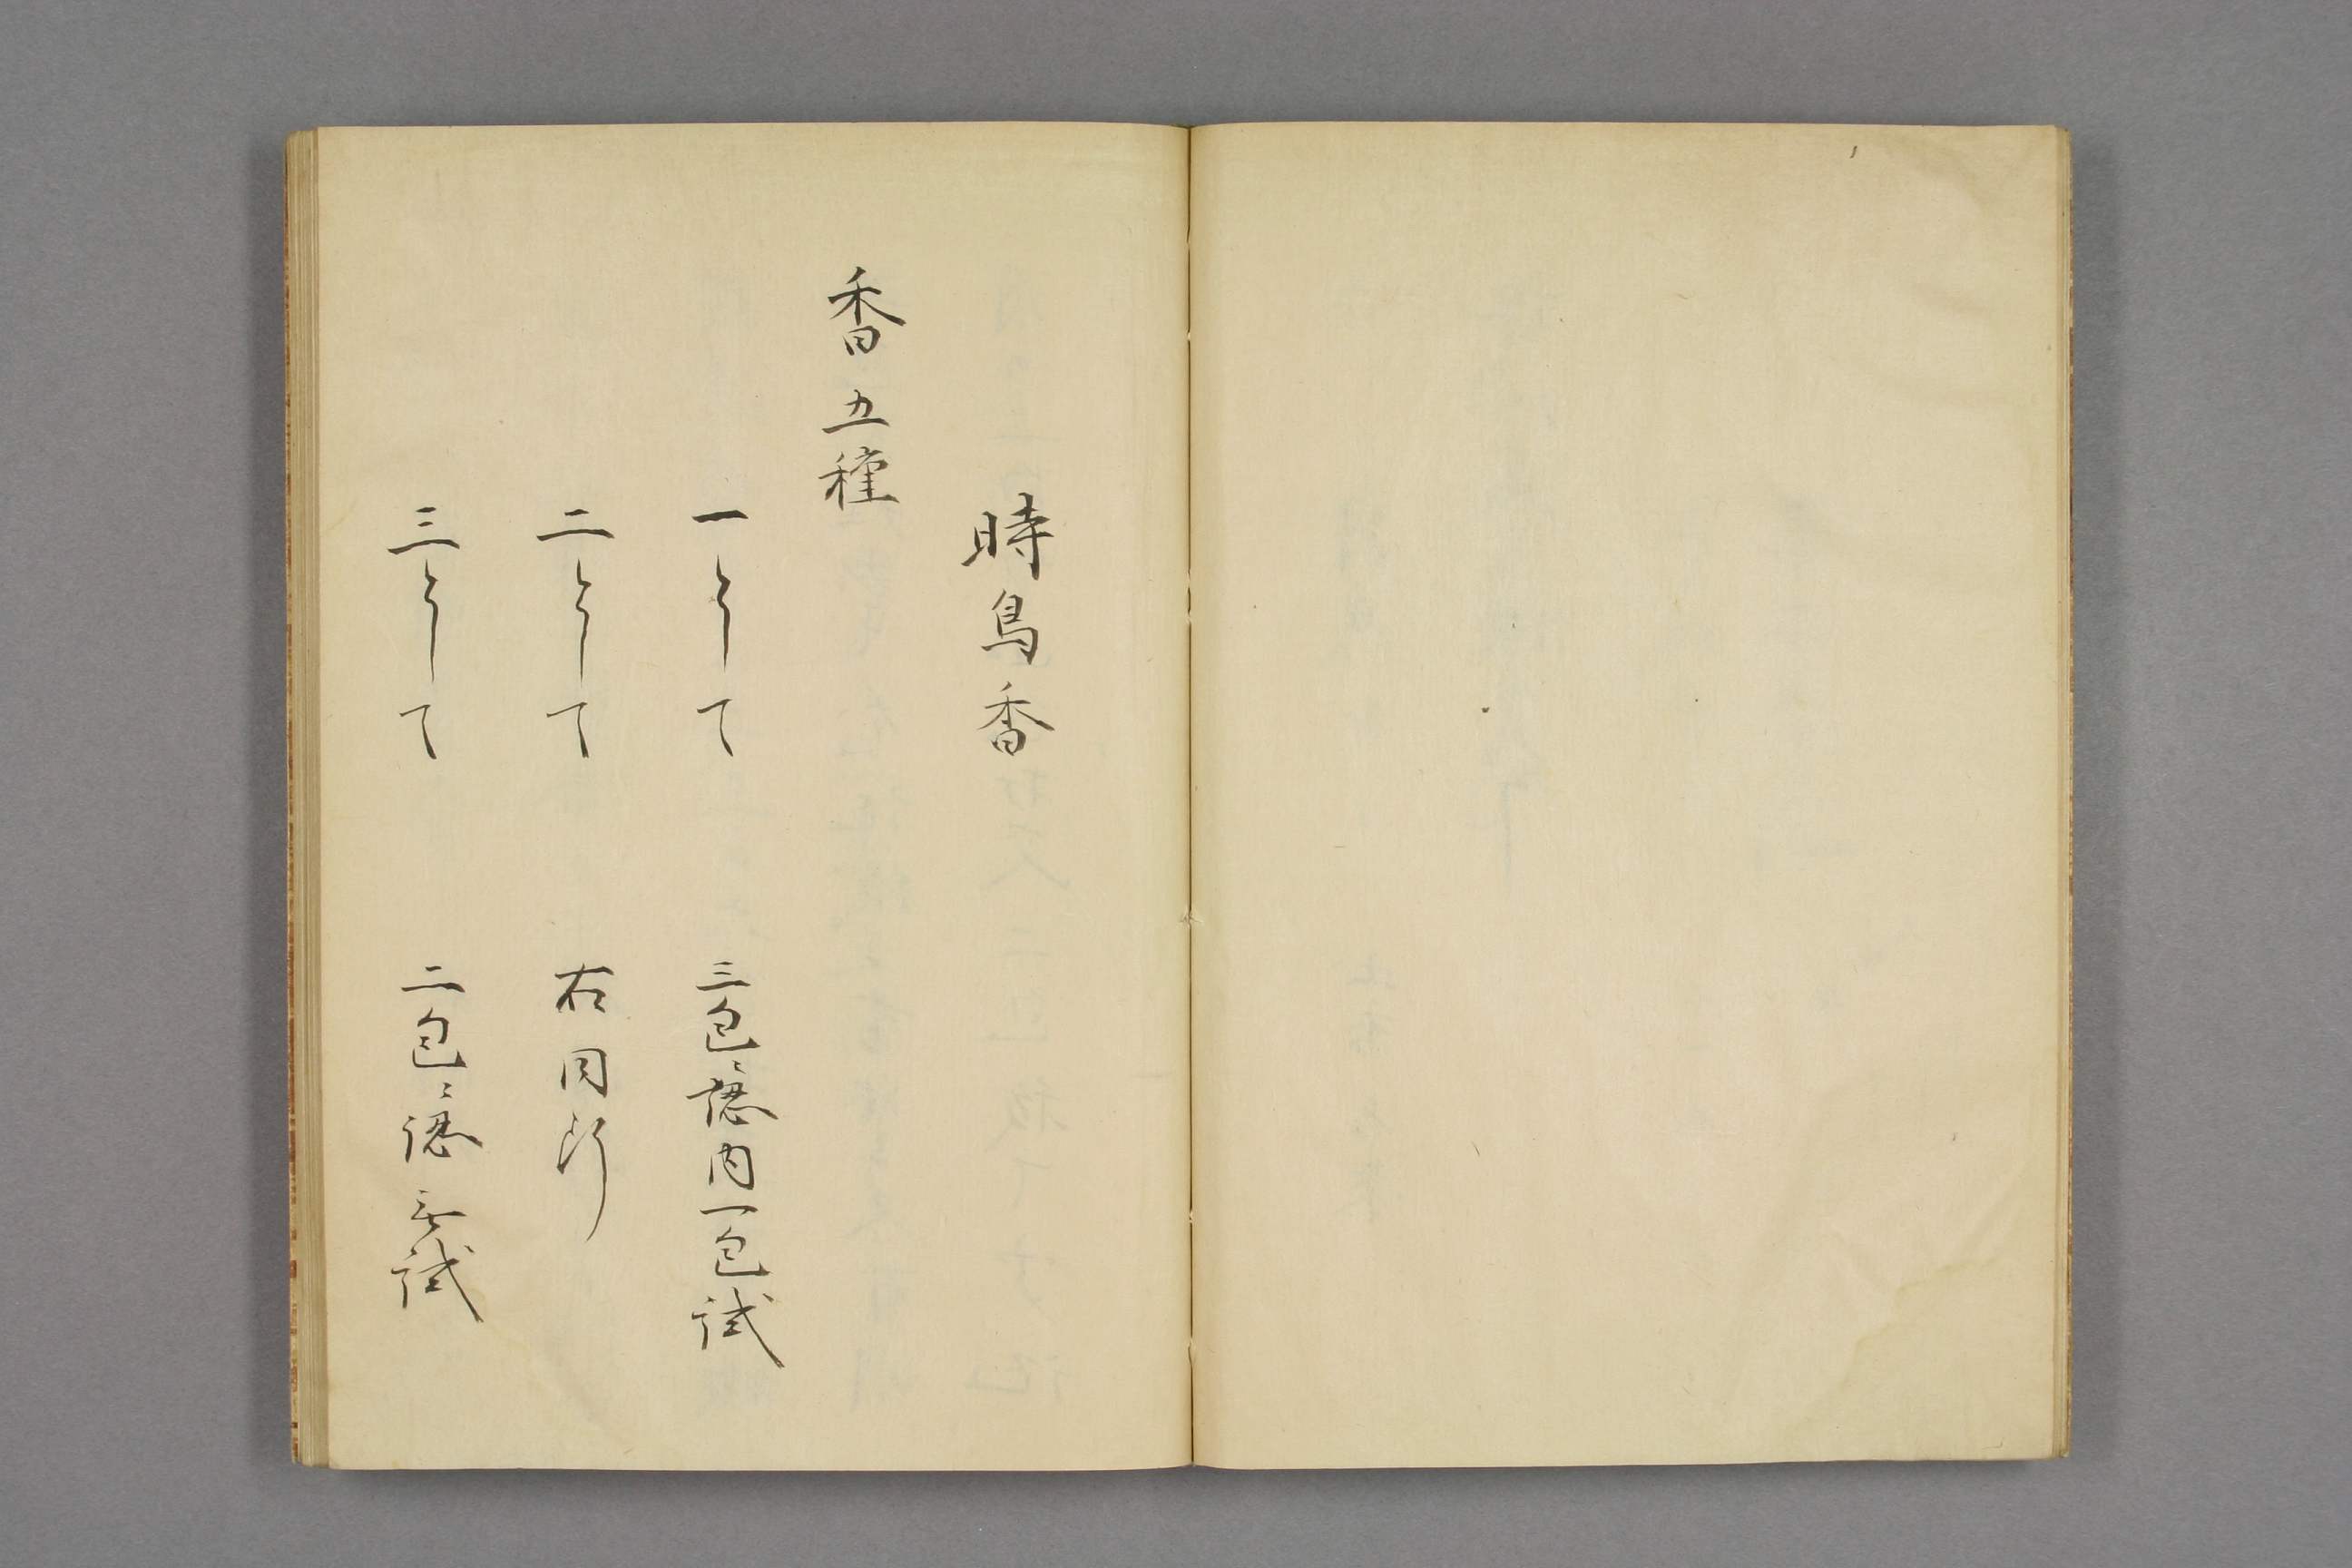 時鳥香
香五種
一として　三包ニ認内一包試
二として　右同断
三として　二包ニ認無試